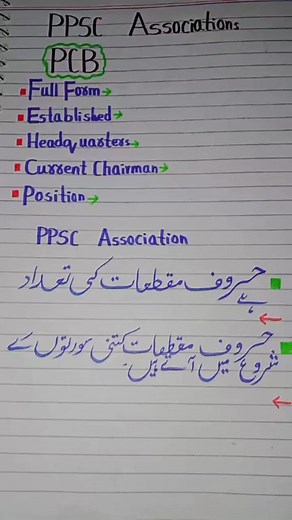 PPSC Associations
PCB
Full Form →
Established →
Headquarters →
Current Chairman →
Position →
PPSC Association
حروف مقطعات کی تعداد
ہے
←
حروف مقطعات کتنی سورتوں کے
شروع میں آتے ہیں۔
←